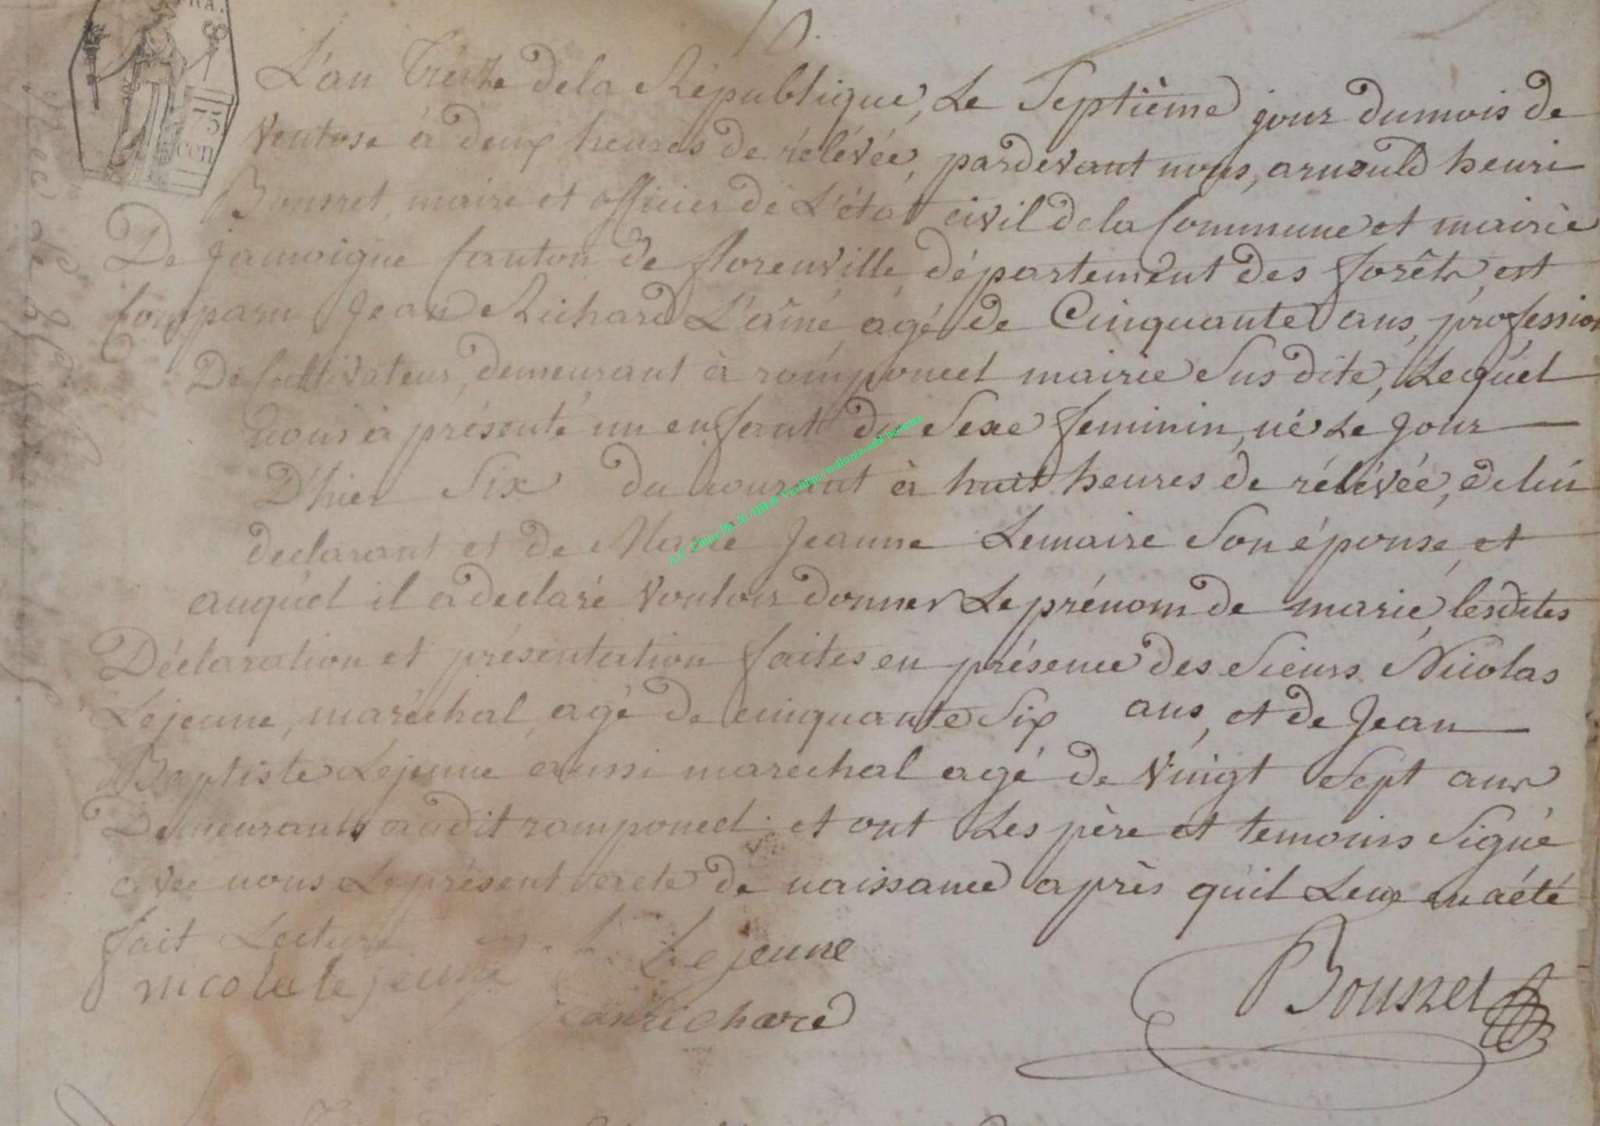 L'an treize de la République, Le Septième jour du mois de
Ventose à deux heures de rélévée, pardevant nous, arnould henri
Bousret, maire et officier de L'état civil de la Commune et mairie
De jamoigne Canton de florenville, département des forêts, est
Comparu Jean Richard L'aîné agé de Cinquante ans, profession
De Cultivateur, demeurant à romponcel mairie Susdite, Lequel
nous à présenté un enfant du Sexe feminin, né Le Jour
D'hier Six du courant à huit heures de rélévée, de lui
declarant et de Marie Jeanne Lemaire Son épouse, et
auquel il a declaré Vouloir donner Le prénom de marie, lesdites
Déclaration et présentation faites en présence des Sieurs Nicolas
Lejeune, maréchal, agé de cinquante Six ans, et de Jean
Baptiste Lejeune aussi marechal agé de Vingt Sept ans
Demeurants audit romponcel; et ont Les père et temoins Signé
avec nous Le présent acte de naissance après qu'il Leur en a été
fait Lecture
Lejeune
nicolas lejeune
jean richard
Bousret